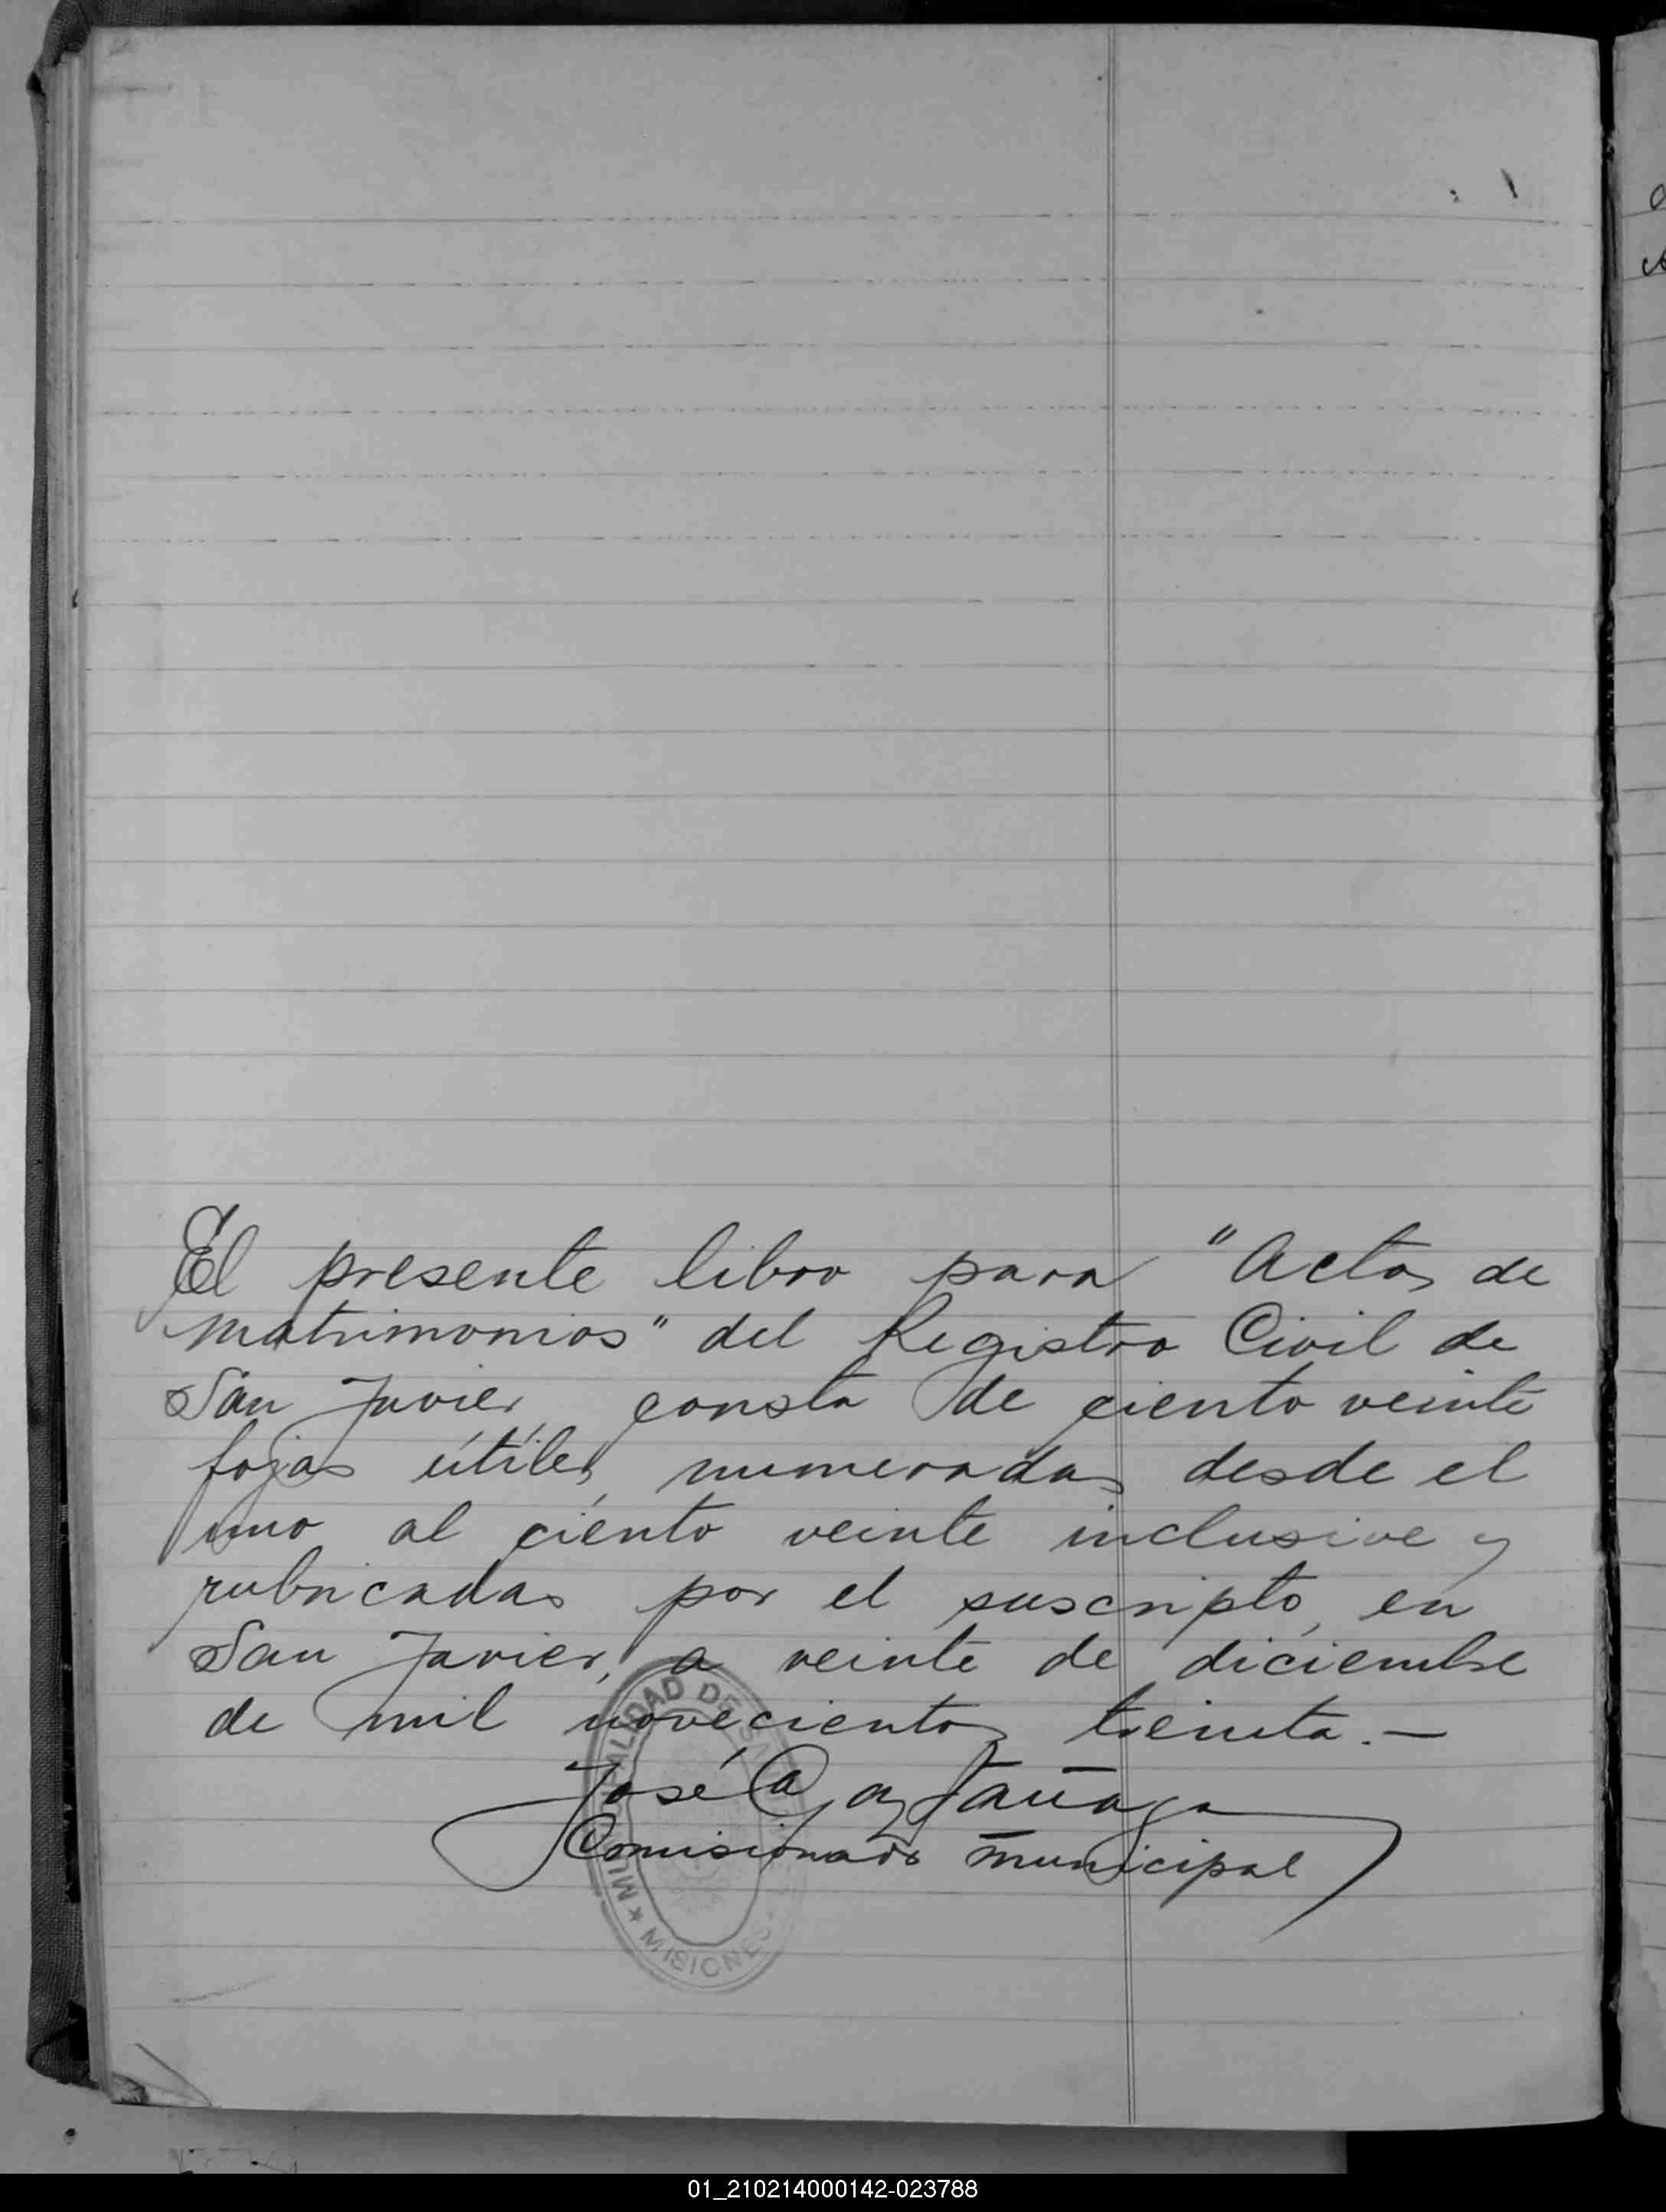 El presente libro para "Actas de
matrimonios" del Registro Civil de
San Javier, consta de ciento veinte
fojas útiles, numeradas desde el
uno al ciento veinte inclusive y
rubricadas por el suscripto, en
San Javier, a veinte de diciembre
de mil novecientos treinta.—
José
Comisionado municipal
MUNICIPALIDAD DE SAN
* MISIONES
01_210214000142-023788